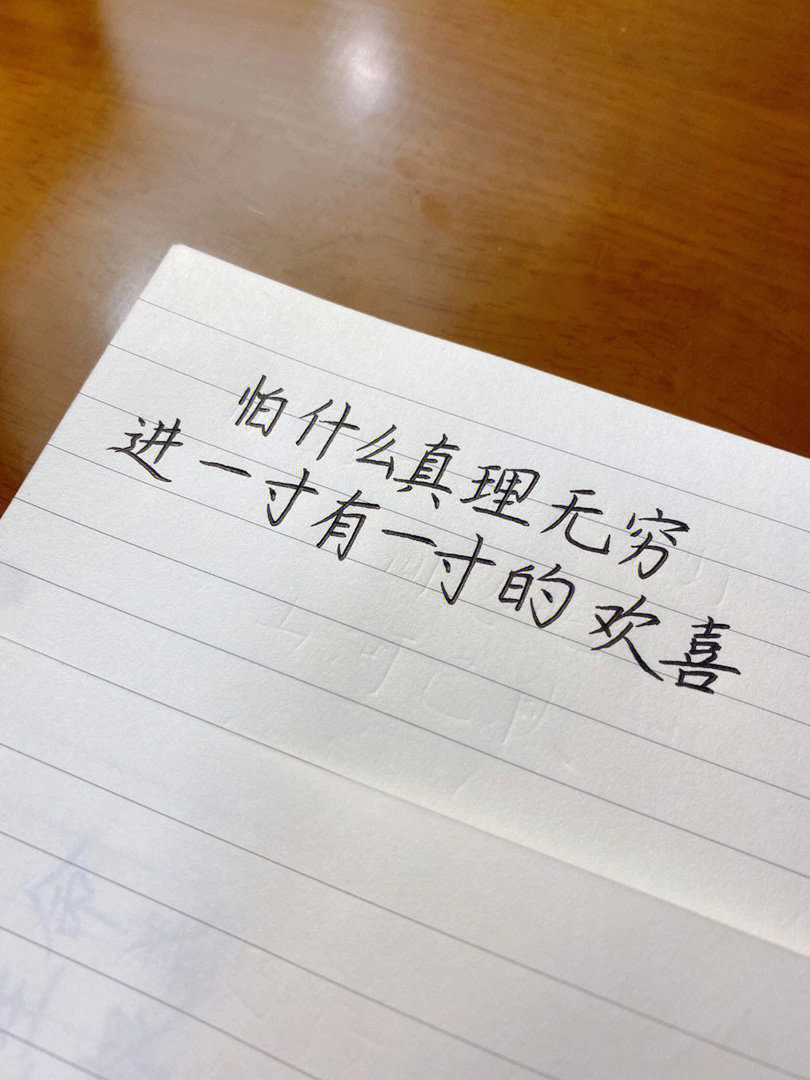 怕什么真理无穷
进一寸有一寸的欢喜